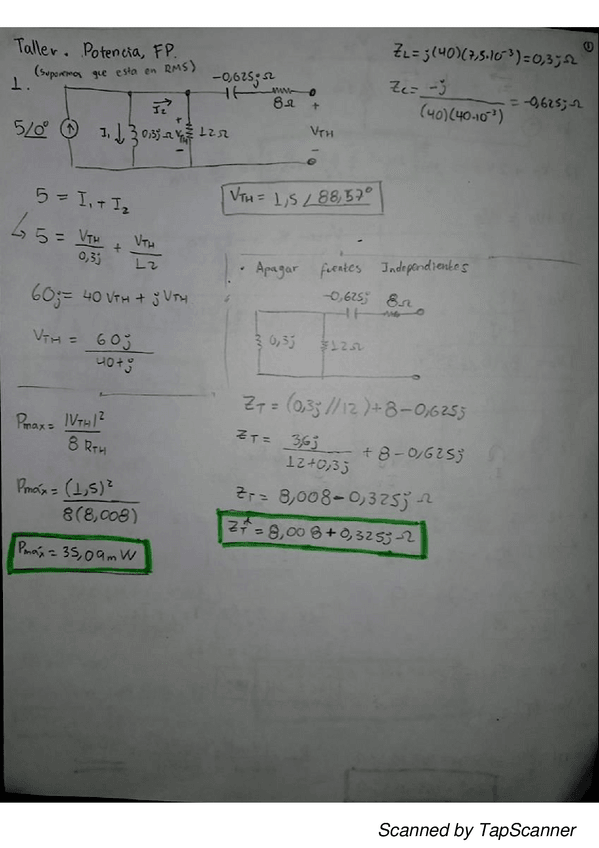 Taller. Potencia, FP.
(Suponemos que esta en RMS)
1.
①
ZL = j(40)(7,5·10⁻³) = 0,3j Ω
Zc = -j / (40)(40·10⁻³) = -0,625j Ω
-0,625j Ω
8Ω
I2
5∠0°
I1 ↓
0,3j Ω
+ VTH -
12Ω
+
VTH
-
5 = I1 + I2
5 = VTH / 0,3j + VTH / 12
60j = 40 VTH + j VTH
VTH = 60j / 40+j
VTH = 1,5 ∠88,57°
• Apagar fuentes Independientes
-0,625j
8Ω
0,3j
12Ω
ZT = (0,3j // 12) + 8 - 0,625j
ZT = 3,6j / 12+0,3j + 8 - 0,625j
ZT = 8,008 - 0,325j Ω
ZT* = 8,008 + 0,325j Ω
Pmax = |VTH|² / 8 RTH
Pmáx = (1,5)² / 8(8,008)
Pmáx = 35,09 mW
Scanned by TapScanner